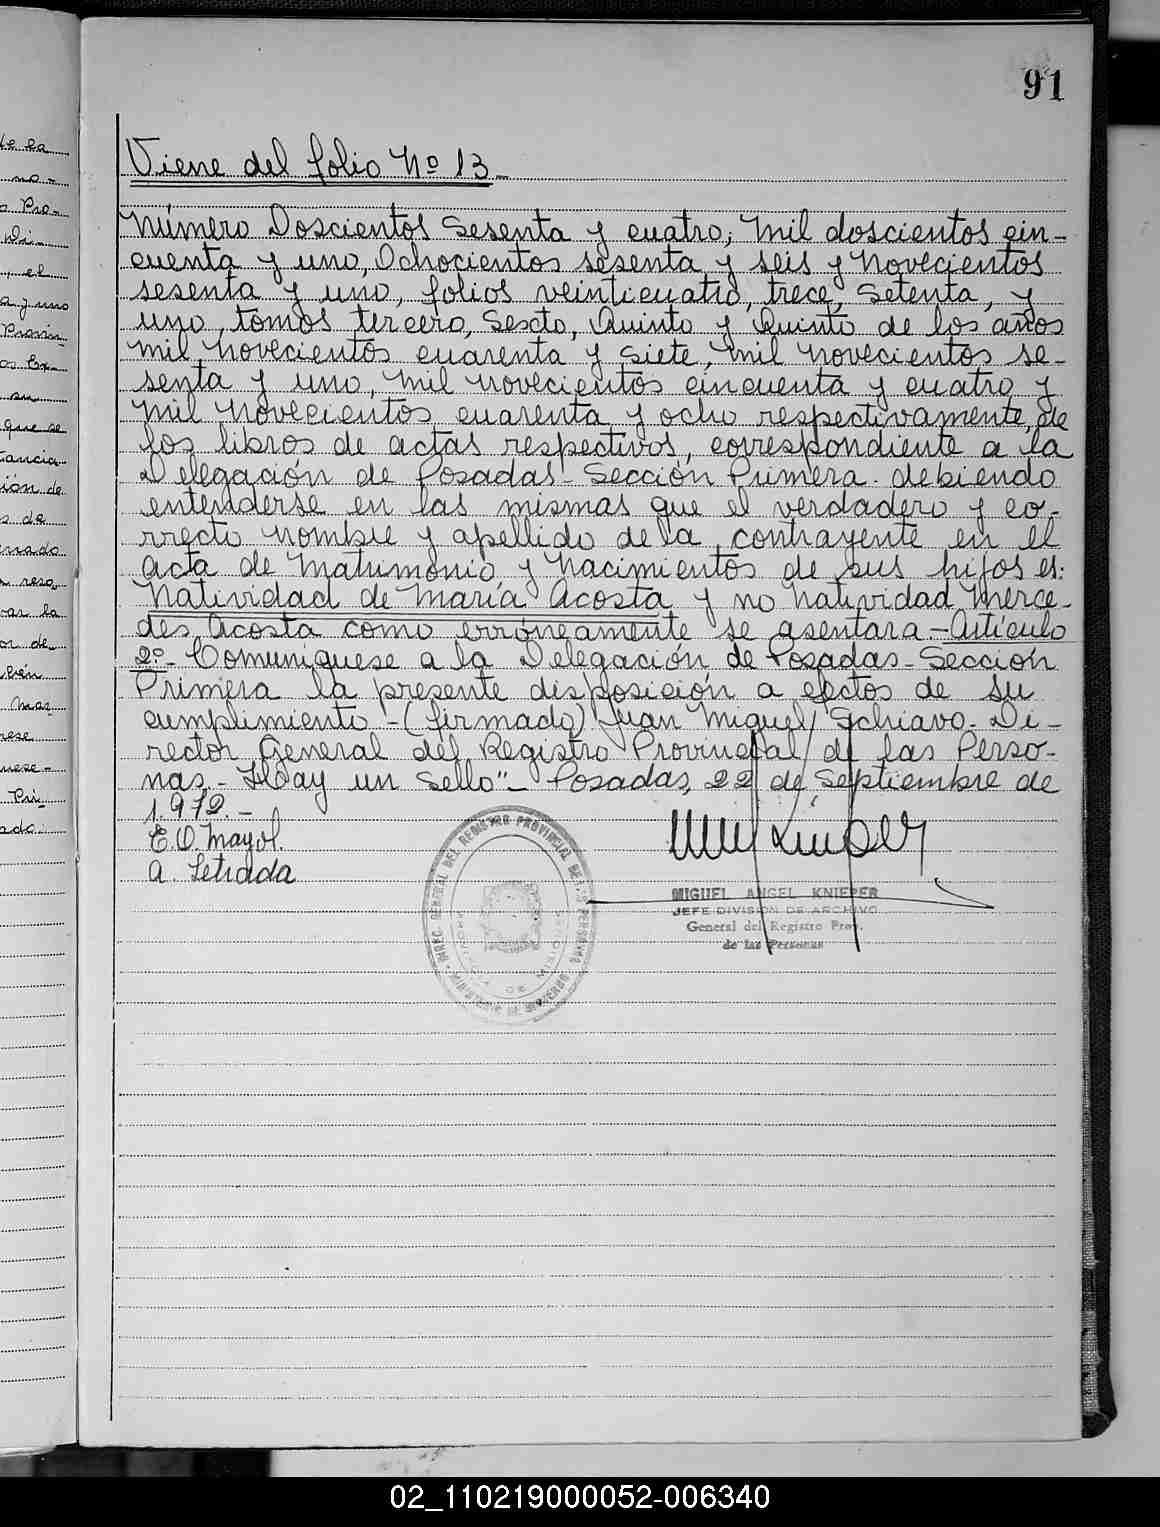 91
de la
no-
Pro-
Di-
, el
a y uno
Provin
os Ex-
su
que se
tancia
ión de
s de
reso
var la
or de-
bién
Mar
ese
uese-
Pri
ado.
Viene del folio Nº 13-
Número Doscientos Sesenta y cuatro; Mil doscientos cin-
cuenta y uno, Ochocientos sesenta y seis y Novecientos
sesenta y uno, folios veinticuatro, trece, setenta, y
uno, tomos tercero, Sexto, Quinto y Quinto de los años
mil novecientos cuarenta y siete, mil novecientos se-
senta y uno, mil novecientos cincuenta y cuatro y
mil novecientos cuarenta y ocho respectivamente, de
los libros de actas respectivos, correspondiente a la
Delegación de Posadas- Sección Primera. debiendo
entenderse en las mismas que el verdadero y co-
rrecto nombre y apellido de la contrayente en el
acta de Matrimonio y Nacimientos de sus hijos es:
Natividad de María Acosta y no Natividad Merce-
des Acosta como erróneamente se asentara.- Artículo
2º- Comuníquese a la Delegación de Posadas- Sección
Primera la presente disposición a efectos de su
cumplimiento -(firmado) Juan Miguel Schiavo- Di-
rector General del Registro Provincial de las Perso-
nas.- Hay un sello"- Posadas, 22 de Septiembre de
1.972.-
E.O. Mayol.
A. Letrada
DIREC. GENERAL DEL REGISTRO PROVINCIAL DE LAS PERSONAS
MINISTERIO DE GOBIERNO
PROVINCIA DE MISIONES
MIGUEL ANGEL KNIEPER
JEFE DIVISION DE ARCHIVO
General del Registro Prov.
de las Personas
02_110219000052-006340